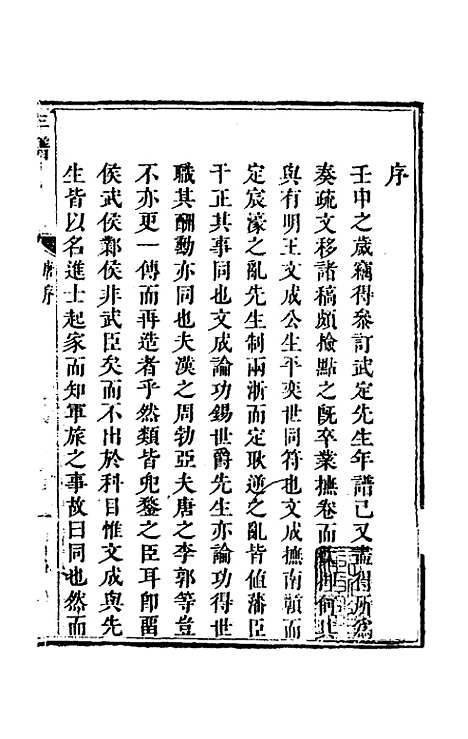 序
壬申之歲竊得叅訂武定先生年譜已又盡得所爲
奏疏文移諸稿頗檢點之旣卒業撫卷而
與有明王文成公生平奕世同符也文成撫南贛而
定宸濠之亂先生制兩浙而定耿逆之亂皆值藩臣
干正其事同也文成論功錫世爵先生亦論功得世
職其酬勳亦同也夫漢之周勃亞夫唐之李郭等豈
不亦更一傳而再造者乎然類皆兜鍪之臣耳卽留
侯武侯鄴侯非武臣矣而不出於科目惟文成與先
生皆以名進士起家而知軍旅之事故曰同也然而
序